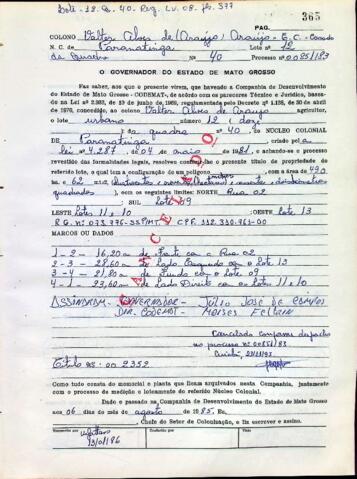 Lote-12-Q. 40. Reg. Lv. 08. fls. 377
PAG. 365
COLONO Valter Alves de Araújo
N. C. de Paranatinga Lote nº 12
da Quadra Nº 40 Processo nº 0085/183
O GOVERNADOR DO ESTADO DE MATO GROSSO
Faz saber, aos que a presente virem, que havendo a Companhia de Desenvolvimento
do Estado de Mato Grosso - CODEMAT-, de acôrdo com os pareceres Técnico e Jurídico, basea-
do na Lei nº 2.993, de 19 de junho de 1969, regulamentada pelo Decreto nº 1.138, de 30 de abril
de 1970, concedido, ao colono Valter Alves de Araujo agricultor, o
lote urbano número 12 (doze
) da quadra nº 40. do NÚCLEO COLONIAL
DE Paranatinga criado pela
lei nº 4.287 de 04 de maio de 1981, e achando-se o processo
revestido das formalidades legais, resolveu conferir-lhe o presente título de propriedade do
referido lote, o qual tem a configuração de um polígono com a área de 490
62 m2
quadrados) e os seguintes limites: NORTE Rua 02
; SUL lote 09
LESTE lotes 11 e 10 ; OESTE lote 13
R.G. nº 073.776-SSP/MT. C.P.F. 112.330.761-00
MARCOS OU DADOS
1 - 2 - 16,20m de Frente com a Rua 02
2 - 3 - 28,60m de Lado Esquerdo com o lote 13
3 - 4 - 21,80m de Fundo com o lote 09
4 - 1 - 23,60m de Lado Direito com os lotes 11 e 10
CANCELADO
ASSINARAM - GOVERNADOR - JÚLIO JOSÉ DE CAMPOS
DIR. CODEMAT - MOISES FELTRIN
Cancelado conforme despacho
no processo nº 00851/83
Cuiabá,
Título nº 002352
Como tudo consta do memorial e planta que ficam arquivados nesta Companhia, juntamente
com o processo de medição e loteamento do referido Núcleo Colonial.
Dado e passado na Companhia de Desenvolvimento do Estado de Mato Grosso
aos 06 dias do mês de agosto de 1985. Eu,
, Chefe do Setor de Colonização, o fiz escrever e assino.